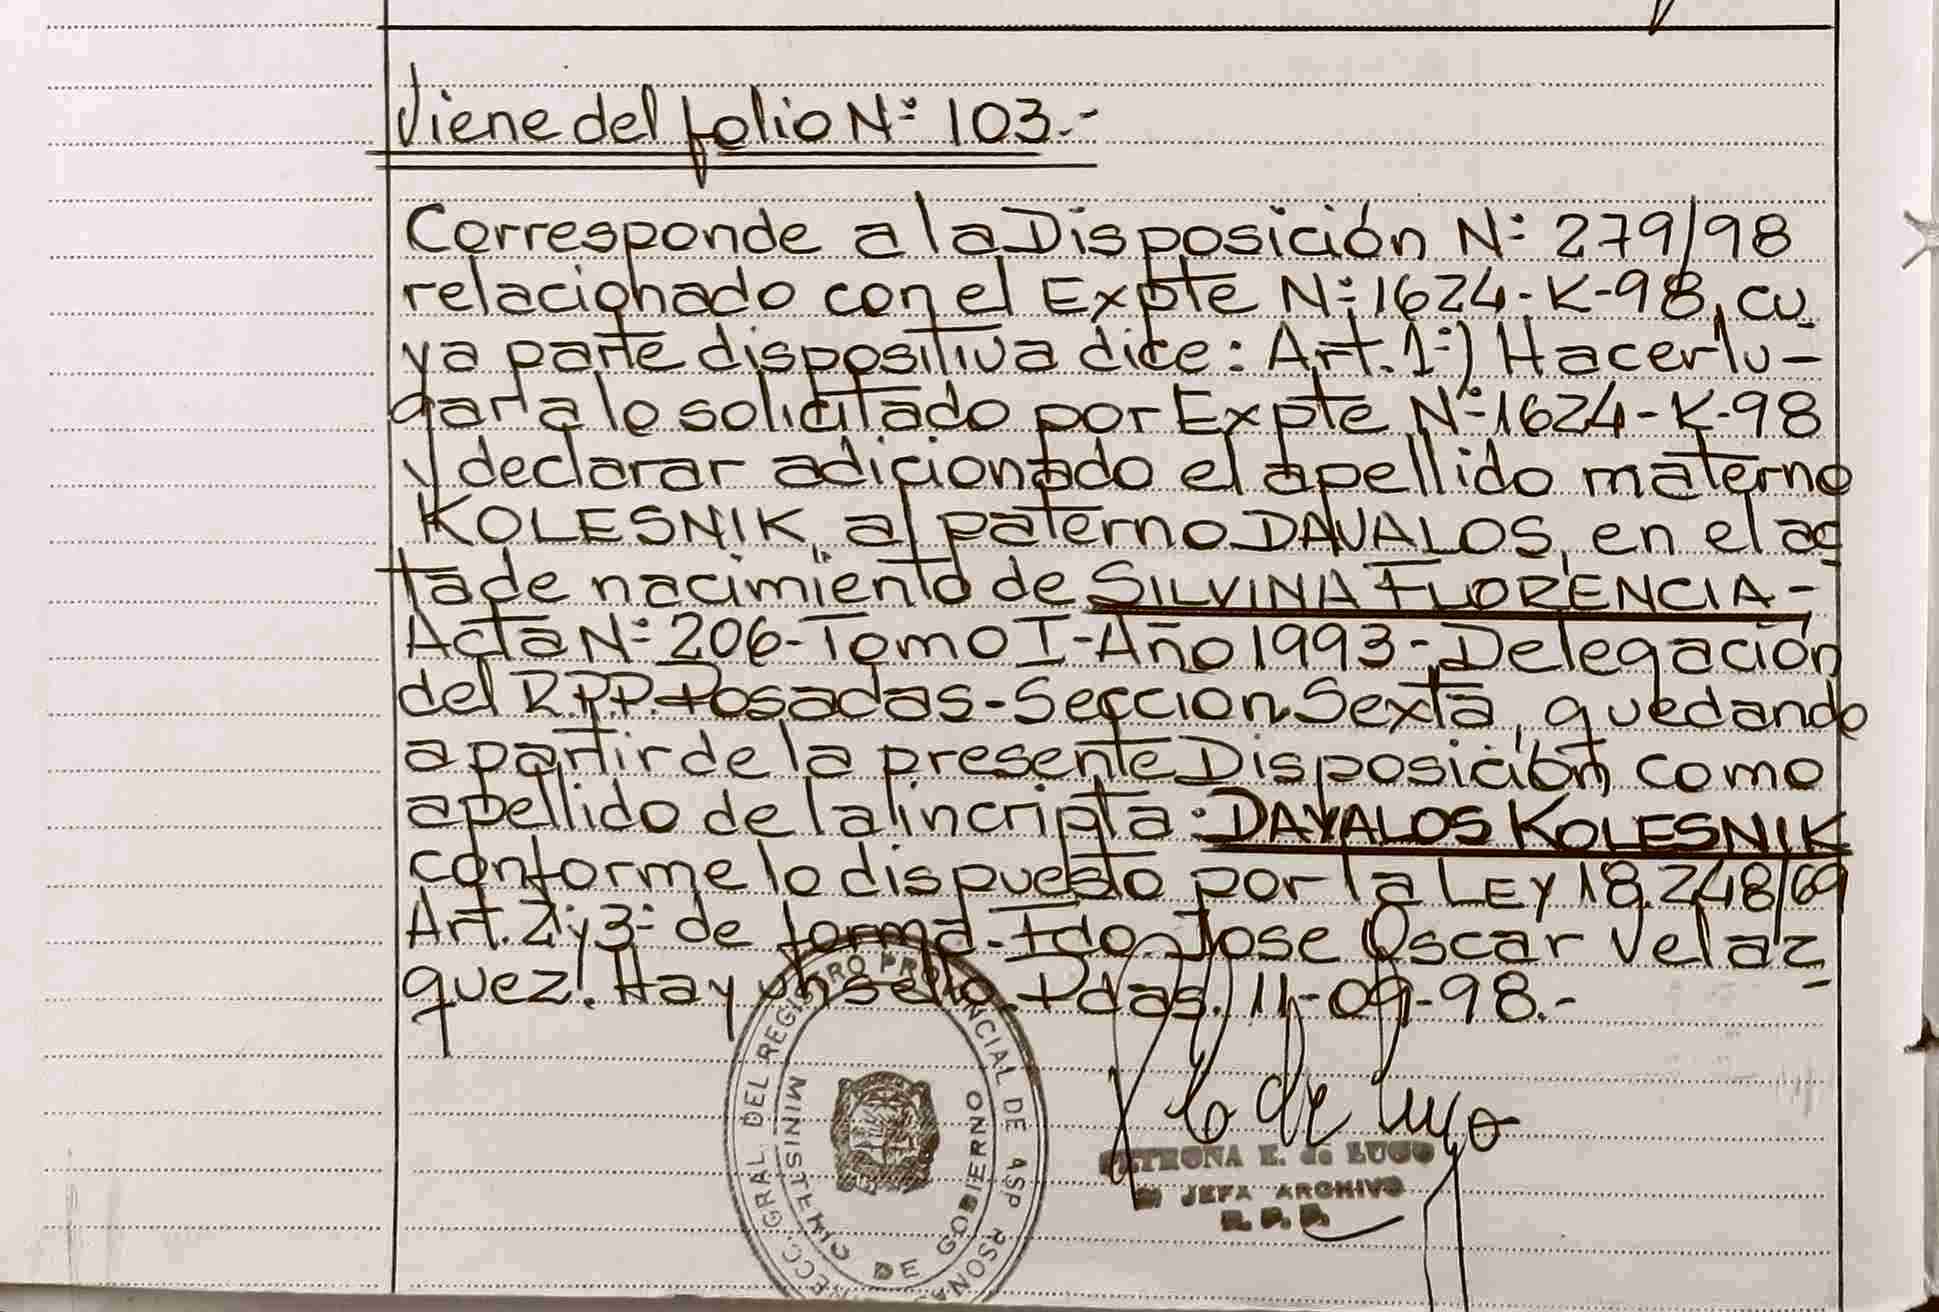 Viene del folio Nº 103.-
Corresponde a la Disposición Nº 279/98
relacionado con el Expte Nº 1624-K-98, cu
ya parte dispositiva dice: Art. 1º) Hacer lu-
gar a lo solicitado por Expte Nº 1624-K-98
y declarar adicionado el apellido materno
KOLESNIK, al paterno DAVALOS, en el ac
ta de nacimiento de SILVINA FLORENCIA-
Acta Nº 206-Tomo I-Año 1993-Delegación
del R.P.P. Posadas-Seccion Sexta, quedando
a partir de la presente Disposición, como
apellido de la incripta: DAVALOS KOLESNIK
conforme lo dispuesto por la LEY 18.248/69
Art. 2 y 3º de forma. Fdo. Jose Oscar Velaz
quez. Hay un sello. Pdas. 11-09-98.-
DIRECC. GRAL DEL REGISTRO PROVINCIAL DE
MINISTERIO DE GOBIERNO
PETRONA E. de LUGO
JEFA ARCHIVO
R. P. P.